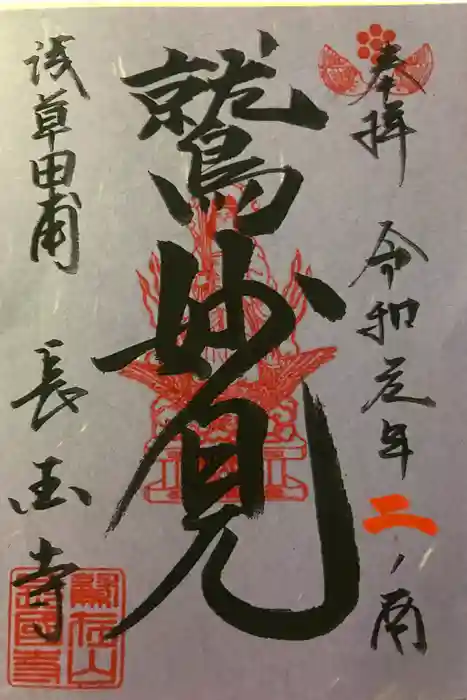 奉拝 令和元年 二ノ酉
鷲妙見
浅草田甫 長国寺
鷲在山
長國寺